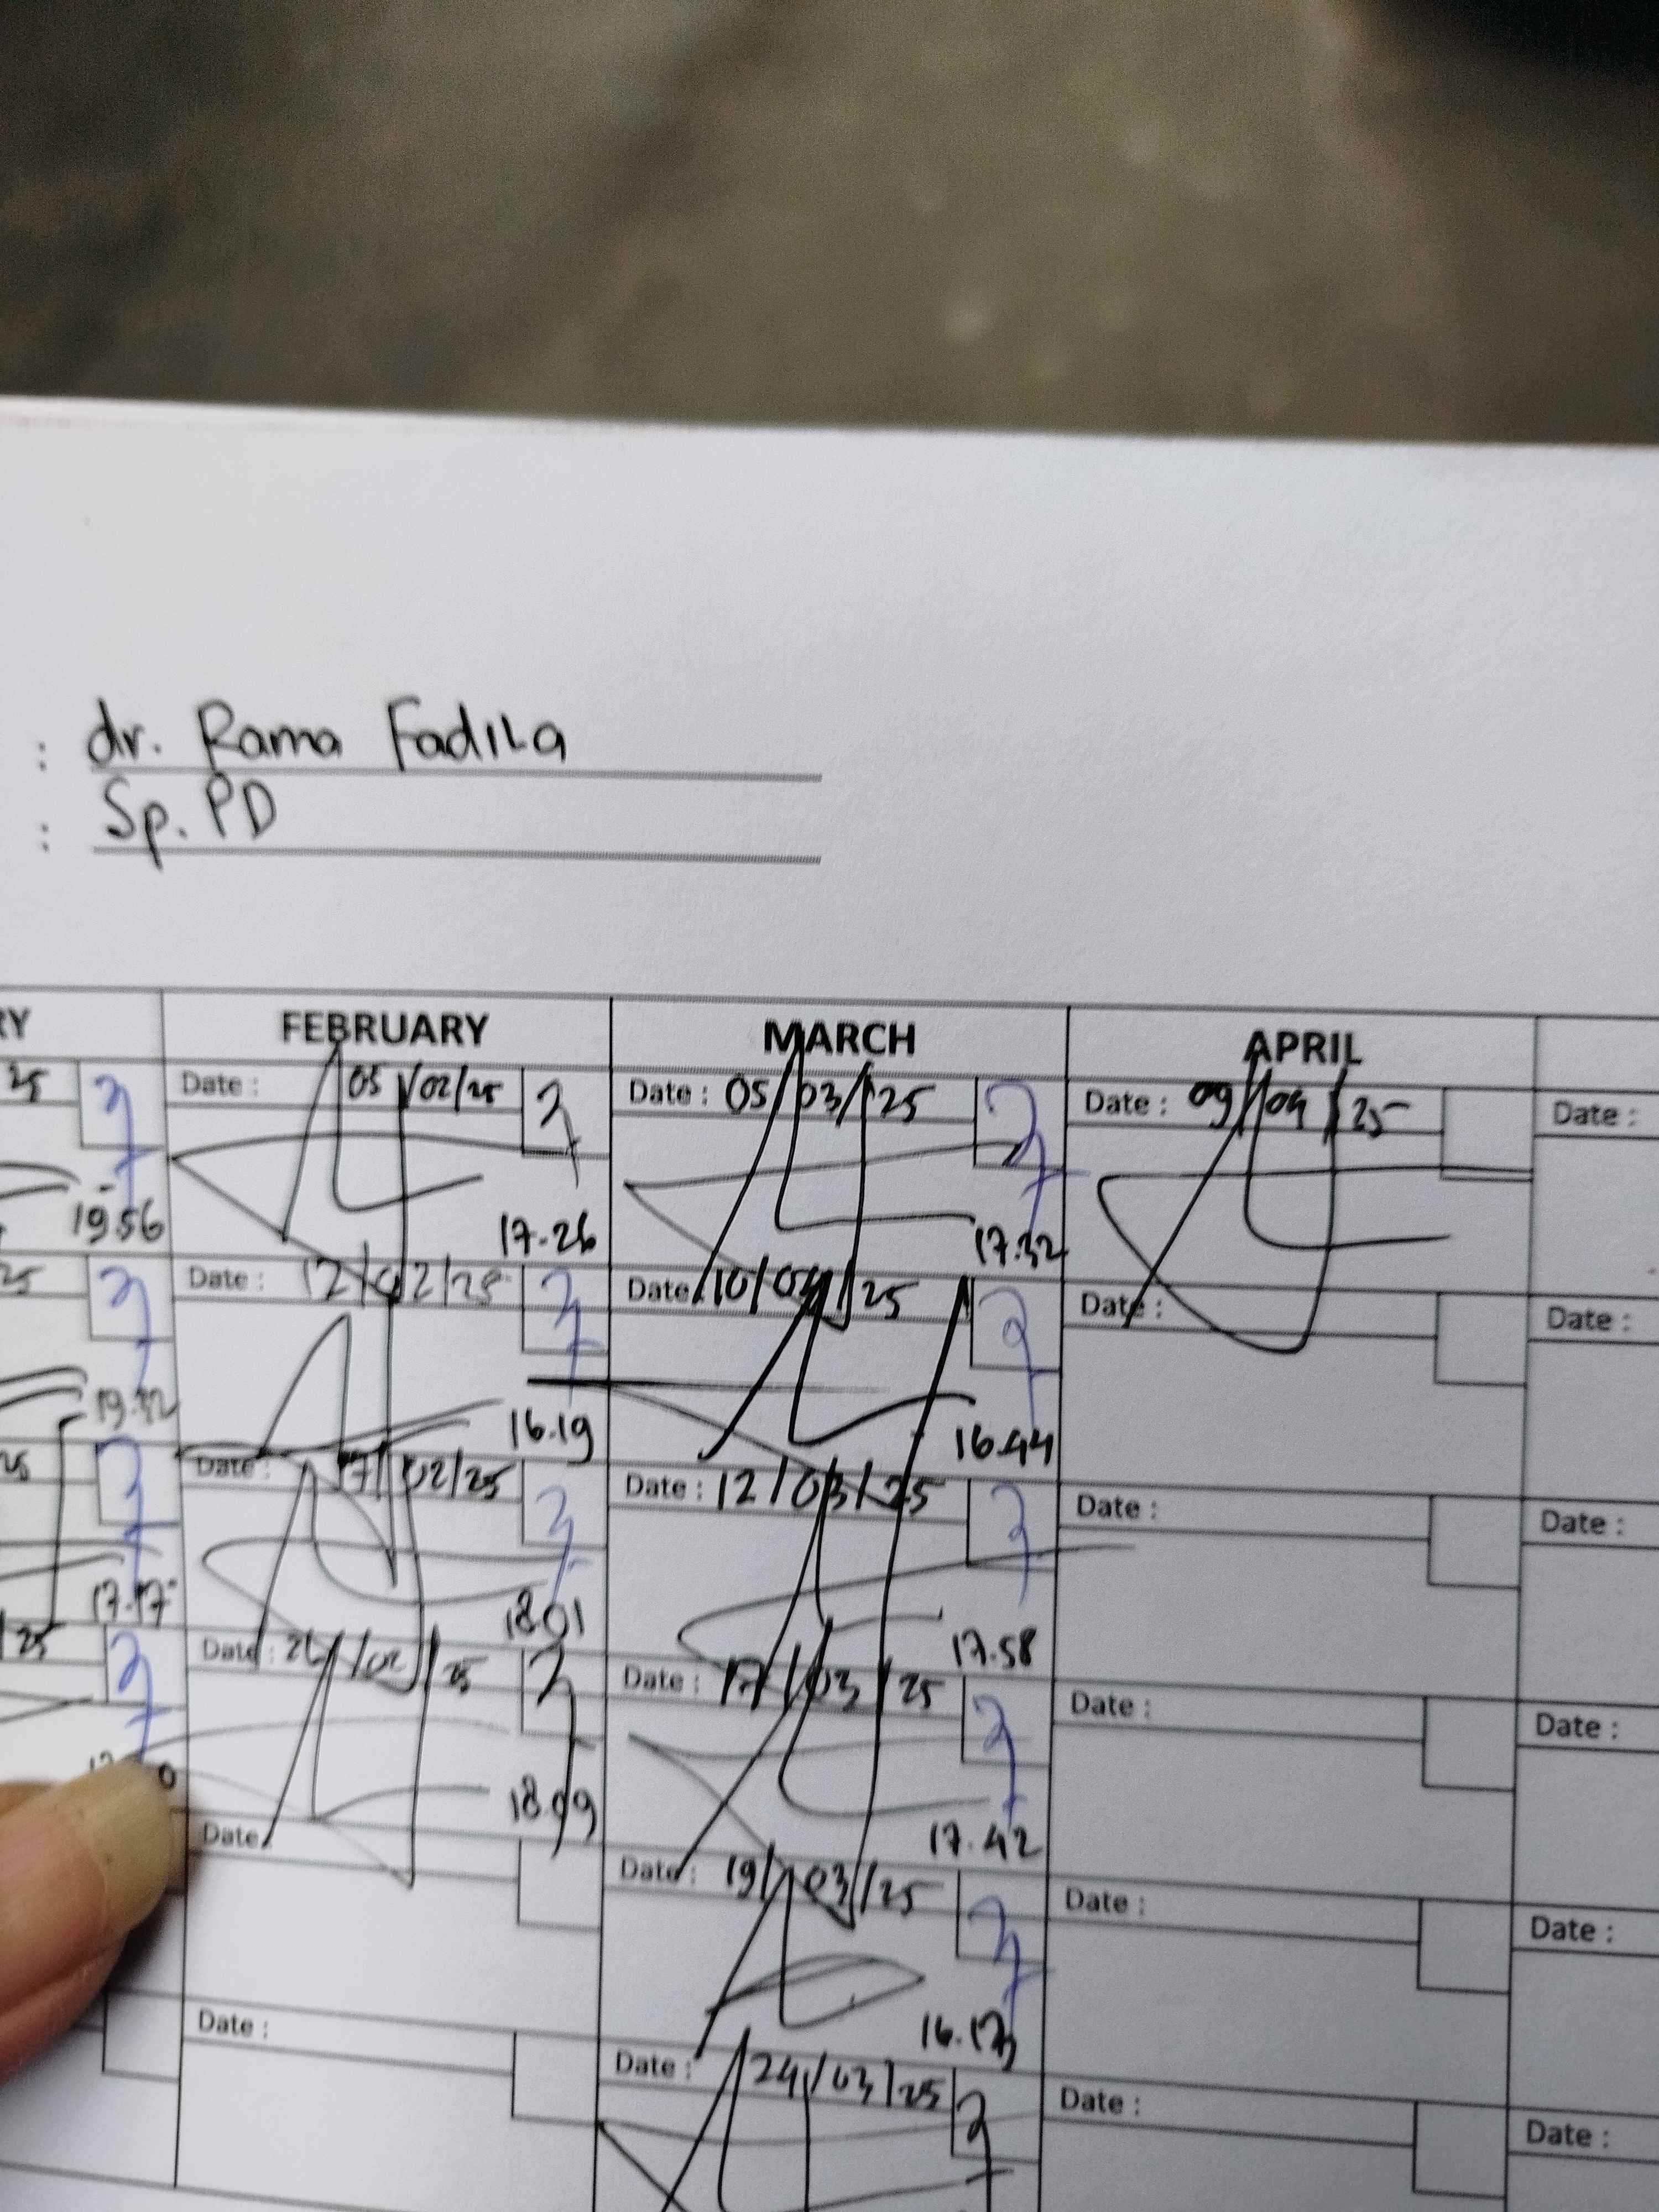 : dr. Rama Fadila
: Sp. PD
RY FEBRUARY MARCH APRIL
25 Date : 05/02/25 Date : 05/03/25 Date : 09/04/25 Date :
19.56 17.26 17.32
25 Date : 12/02/25 Date : 10/03/25 Date : Date :
19.32 16.19 16.44
25 Date : 17/02/25 Date : 12/03/25 Date : Date :
17.17 18.01 17.58
/25 Date : 26/02/25 Date : 17/03/25 Date : Date :
18.09 17.42
Date : Date : 19/03/25 Date : Date :
16.17
Date : Date : 24/03/25 Date : Date :